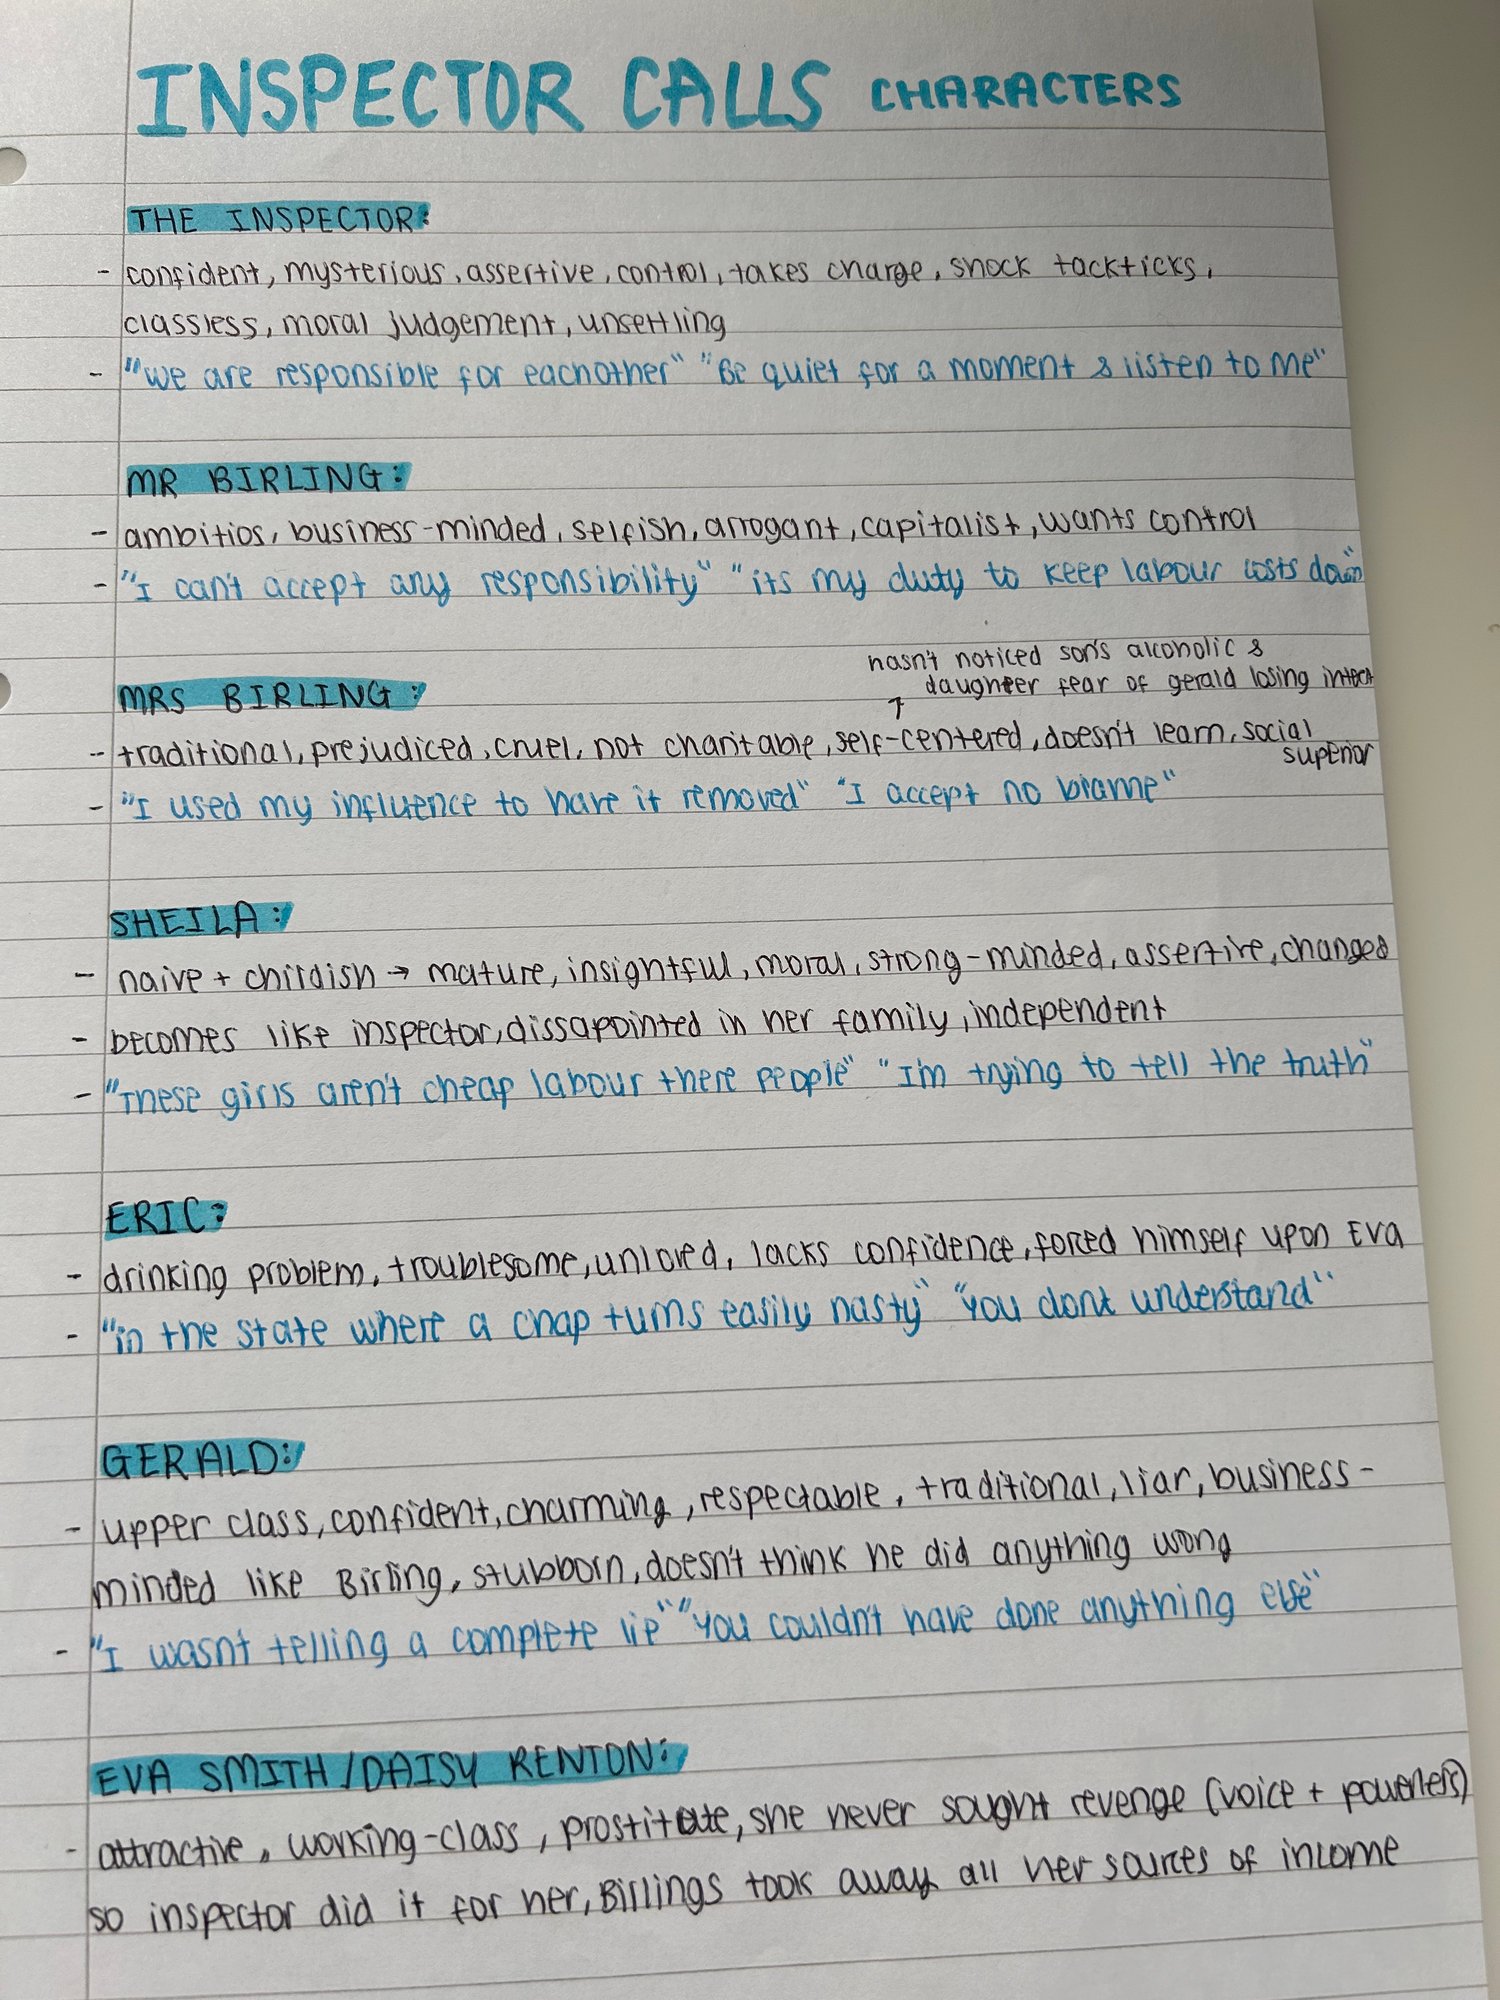 INSPECTOR CALLS CHARACTERS
THE INSPECTOR:
- confident, mysterious, assertive, control, takes charge, shock tackticks,
classless, moral judgement, unsettling
- "we are responsible for eachother" "Be quiet for a moment & listen to me"
MR BIRLING:
- ambitios, business-minded, selfish, arrogant, capitalist, wants control
- "I can't accept any responsibility" "its my duty to keep labour costs down"
hasn't noticed son's alcoholic &
daugheer fear of gerald losing
MRS BIRLING:
- traditional, prejudiced, cruel, not charitable, self-centered, doesn't learn, social
superior
- "I used my influence to have it removed" "I accept no blame"
SHEILA:
- naive + childish → mature, insightful, moral, strong-minded, assertive, changed
- becomes like inspector, dissapointed in her family, independent
- "These girls aren't cheap labour there people" "I'm trying to tell the truth"
ERIC:
- drinking problem, troublesome, unloved, lacks confidence, forced himself upon Eva
- "in the state where a chap turns easily nasty" "You dont understand"
GERALD:
- upper class, confident, charming, respectable, traditional, liar, business-
minded like Birling, stubborn, doesn't think he did anything wrong
- "I wasn't telling a complete lie" "You couldn't have done anything else"
EVA SMITH/DAISY RENTON:
- attractive, working-class, prostitute, she never sought revenge (voice +
so inspector did it for her, Birlings took away all her sources of income